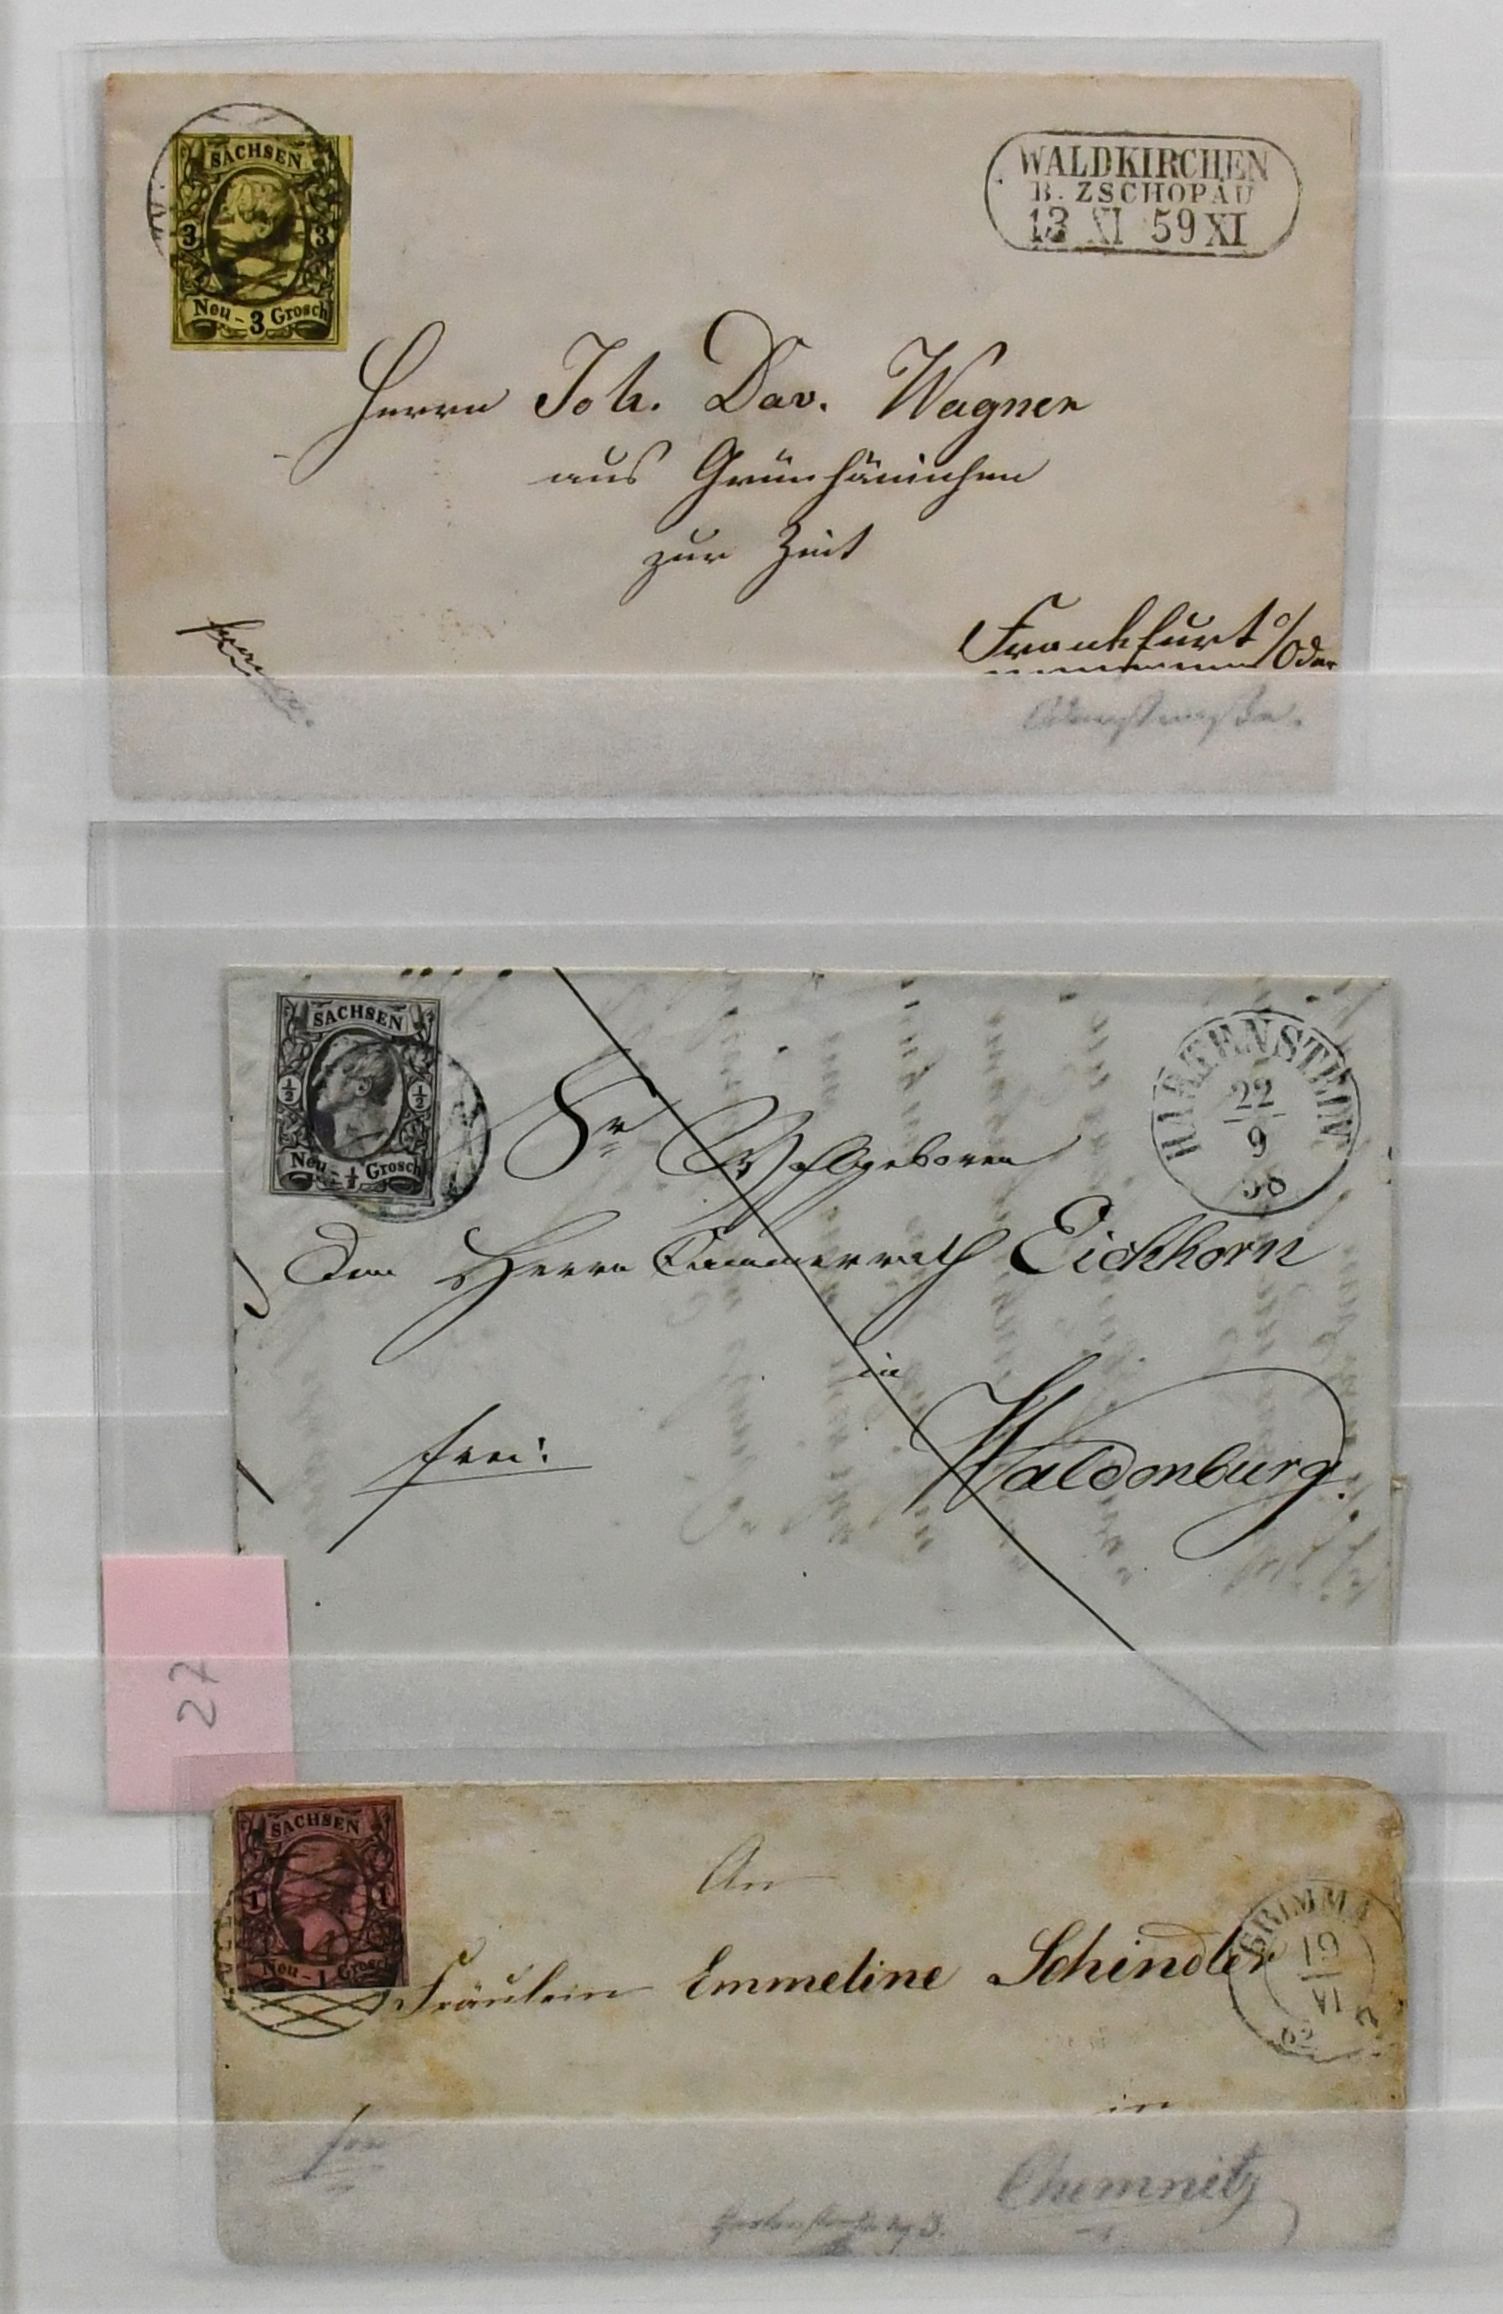 SACHSEN
3 3
Neu - 3 Grosch
WALDKIRCHEN
B. ZSCHOPAU
13 XI 59 XI
Herrn Joh. Dav. Wagner
aus Grünhainichen
zur Zeit
Frankfurt a/Oder
SACHSEN
½ ½
Neu - ½ Grosch
HARTENSTEIN
22
9
58
Sr Wohlgeboren
Dem Herrn Cammerrath Eichhorn
in
frei:
Waldenburg.
27
SACHSEN
1 1
Neu - 1 Grosch
GRIMMA
19
VI
62
An
Fräulein Emmeline Schindler
in
Chemnitz